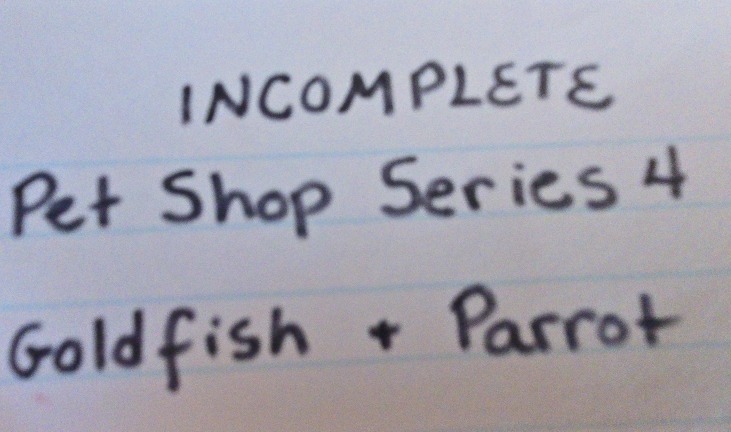 INCOMPLETE
Pet Shop Series 4
Goldfish + Parrot